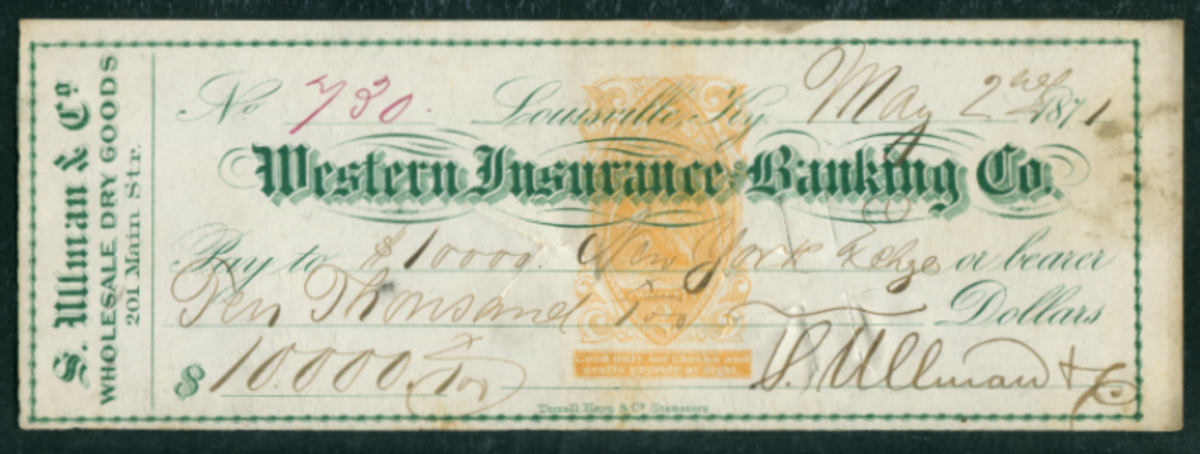 S. Ullman & Co
WHOLESALE DRY GOODS
201 Main Str.
No 730. Louisville, Ky. May 2nd 1871
Western Insurance and Banking Co.
Pay to $10000. New York Exchge or bearer
Ten Thousand Dollars
Good only for checks and
drafts payable at sight.
$ 10.000. S. Ullman & Co